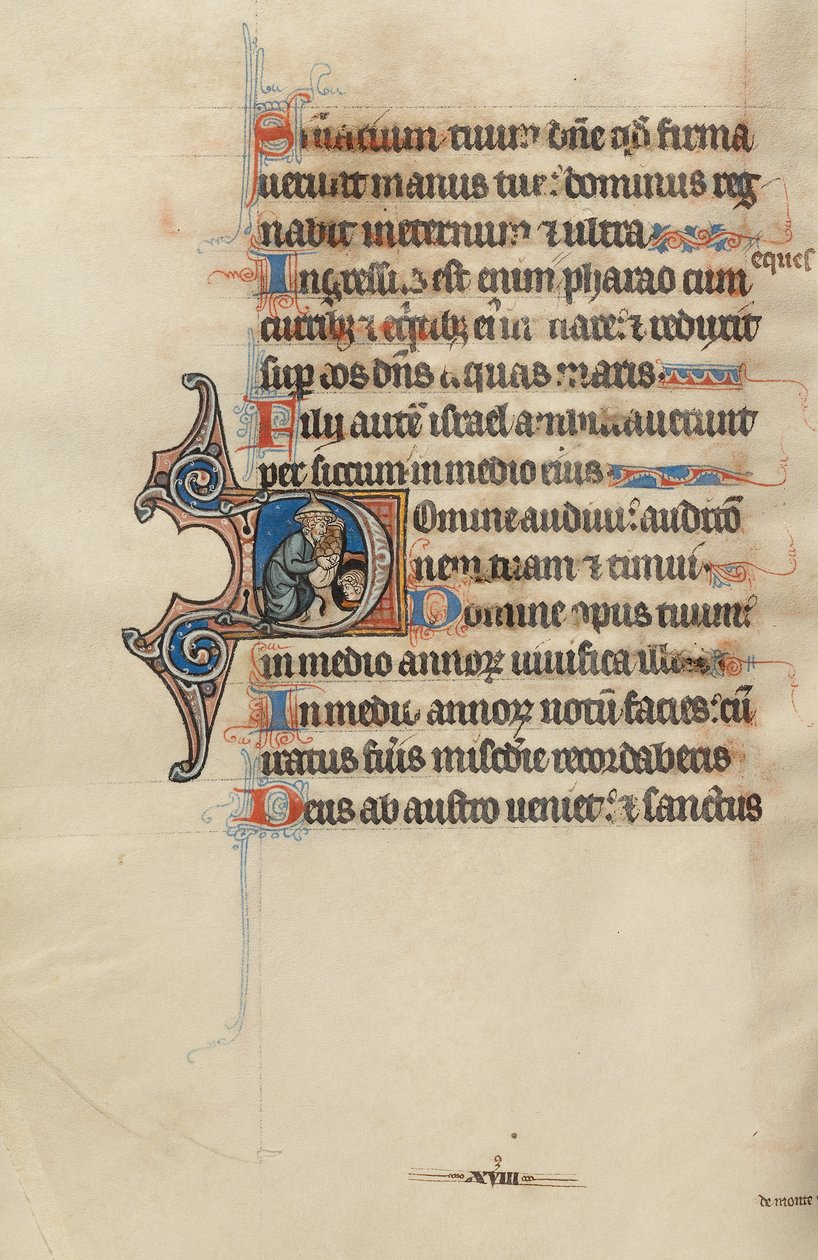 Sc̄uarium tuum dn̄e qd̄ firma
uerunt manus tue: dominus reg
nabit ineternum ⁊ ultra
eques
Ingressus est enim pharao cum
curribꝫ ⁊ eq̇tibꝫ ei in mare: ⁊ reduxit
suꝑ eos dn̄s aquas maris.
Filij autē israel ambulauerunt
per siccum in medio eius
Domine audiui: auditō
nem tuam ⁊ timui.
Domine opus tuum:
in medio annoꝝ uiuifica illud
In medio annoꝝ notū facies: cū
iratus fūis misc̄die recordaberis
Deus ab austro ueniet: ⁊ sanctus
XVIII
de monte